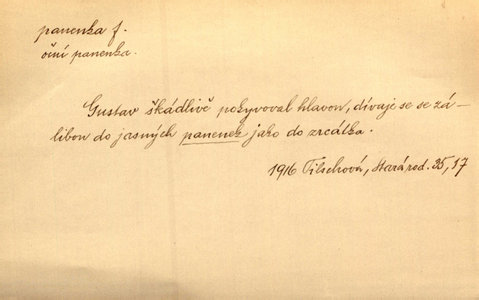 panenka f.
oční panenka.
Gustav škádlivě pokyvoval hlavou, dívaje se se zá-
libou do jasných panenek jako do zrcátka.
1916 Tilschová, Stará rod. 35, 17